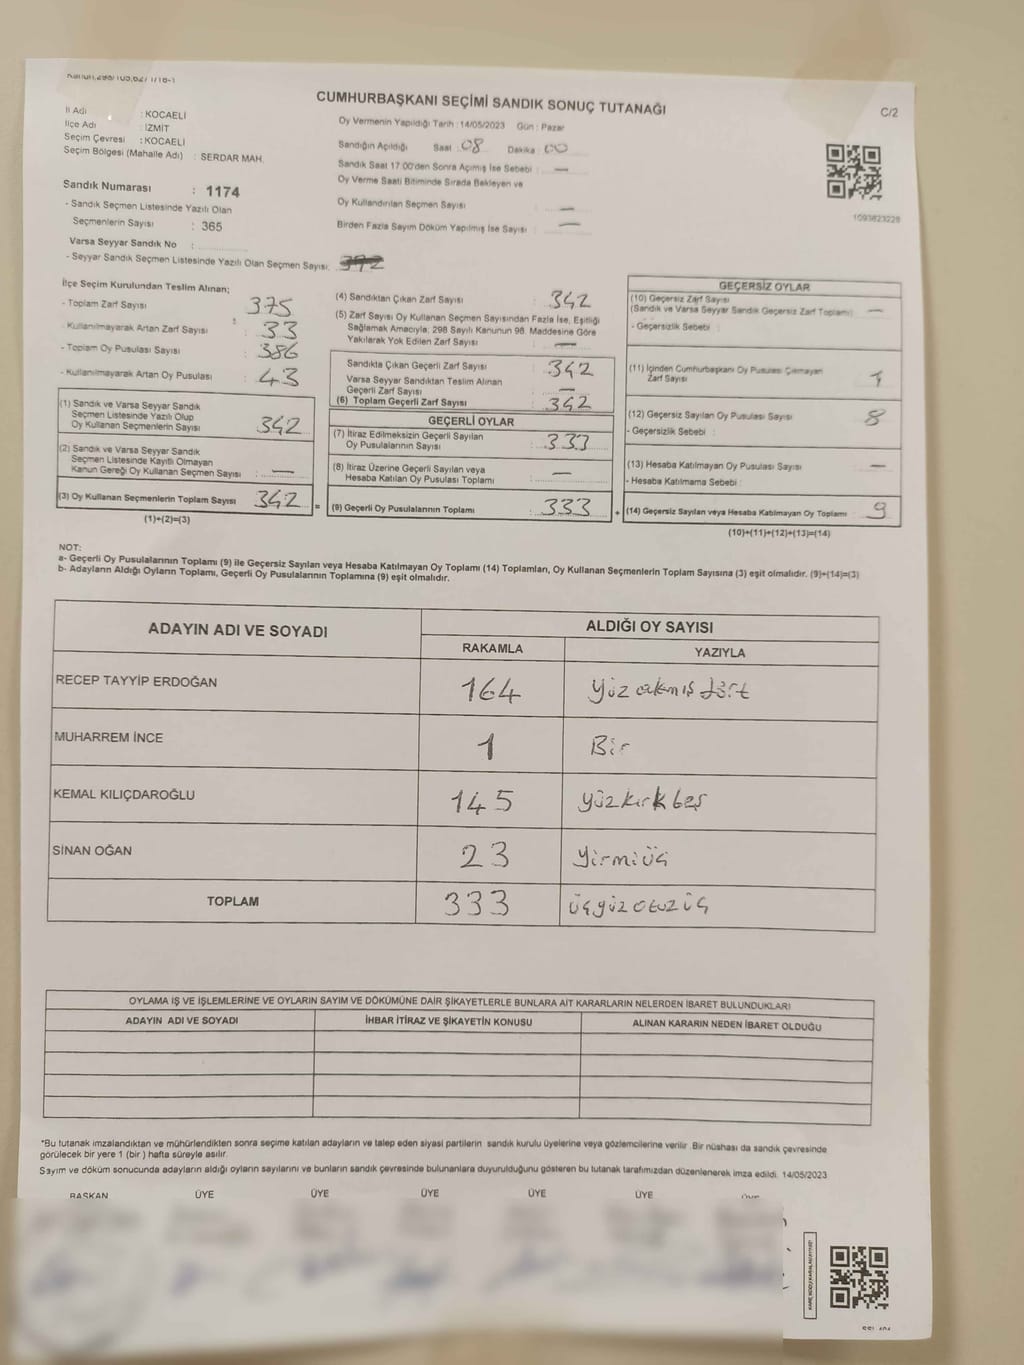 Kanun:298/105,627 1/16-1
CUMHURBAŞKANI SEÇİMİ SANDIK SONUÇ TUTANAĞI
C/2
İl Adı : KOCAELİ
İlçe Adı : İZMİT
Seçim Çevresi : KOCAELİ
Seçim Bölgesi (Mahalle Adı) : SERDAR MAH.
Oy Vermenin Yapıldığı Tarih : 14/05/2023 Gün : Pazar
Sandığın Açıldığı Saat : 08 Dakika : 00
Sandık Saat 17:00'den Sonra Açımış İse Sebebi : —
Oy Verme Saati Bitiminde Sırada Bekleyen ve
Oy Kullandırılan Seçmen Sayısı : —
Birden Fazla Sayım Döküm Yapılmış İse Sayısı : —
1093823228
Sandık Numarası : 1174
- Sandık Seçmen Listesinde Yazılı Olan
Seçmenlerin Sayısı : 365
Varsa Seyyar Sandık No :
- Seyyar Sandık Seçmen Listesinde Yazılı Olan Seçmen Sayısı:
İlçe Seçim Kurulundan Teslim Alınan;
- Toplam Zarf Sayısı : 375
- Kullanılmayarak Artan Zarf Sayısı : 33
- Toplam Oy Pusulası Sayısı : 386
- Kullanılmayarak Artan Oy Pusulası : 43
(1) Sandık ve Varsa Seyyar Sandık
Seçmen Listesinde Yazılı Olup
Oy Kullanan Seçmenlerin Sayısı : 342
(2) Sandık ve Varsa Seyyar Sandık
Seçmen Listesinde Kayıtlı Olmayan
Kanun Gereği Oy Kullanan Seçmen Sayısı : —
(3) Oy Kullanan Seçmenlerin Toplam Sayısı : 342 =
(1)+(2)=(3)
(4) Sandıktan Çıkan Zarf Sayısı : 342
(5) Zarf Sayısı Oy Kullanan Seçmen Sayısından Fazla İse, Eşitliği
Sağlamak Amacıyla; 298 Sayılı Kanunun 98. Maddesine Göre
Yakılarak Yok Edilen Zarf Sayısı : —
Sandıkta Çıkan Geçerli Zarf Sayısı : 342
Varsa Seyyar Sandıktan Teslim Alınan
Geçerli Zarf Sayısı : —
(6) Toplam Geçerli Zarf Sayısı : 342
GEÇERLİ OYLAR
(7) İtiraz Edilmeksizin Geçerli Sayılan
Oy Pusulalarının Sayısı : 333
(8) İtiraz Üzerine Geçerli Sayılan veya
Hesaba Katılan Oy Pusulası Toplamı : —
(9) Geçerli Oy Pusulalarının Toplamı : 333 +
GEÇERSİZ OYLAR
(10) Geçersiz Zarf Sayısı
(Sandık ve Varsa Seyyar Sandık Geçersiz Zarf Toplamı) : —
- Geçersizlik Sebebi :
(11) İçinden Cumhurbaşkanı Oy Pusulası Çıkmayan
Zarf Sayısı : 1
(12) Geçersiz Sayılan Oy Pusulası Sayısı : 8
- Geçersizlik Sebebi :
(13) Hesaba Katılmayan Oy Pusulası Sayısı : —
- Hesaba Katılmama Sebebi :
(14) Geçersiz Sayılan veya Hesaba Katılmayan Oy Toplamı : 9
(10)+(11)+(12)+(13)=(14)
NOT:
a- Geçerli Oy Pusulalarının Toplamı (9) ile Geçersiz Sayılan veya Hesaba Katılmayan Oy Toplamı (14) Toplamları, Oy Kullanan Seçmenlerin Toplam Sayısına (3) eşit olmalıdır. (9)+(14)=(3)
b- Adayların Aldığı Oyların Toplamı, Geçerli Oy Pusulalarının Toplamına (9) eşit olmalıdır.
ADAYIN ADI VE SOYADI ALDIĞI OY SAYISI
RAKAMLA YAZIYLA
RECEP TAYYİP ERDOĞAN 164 Yüz atmış dört
MUHARREM İNCE 1 Bir
KEMAL KILIÇDAROĞLU 145 Yüzkırk beş
SİNAN OĞAN 23 Yirmiüç
TOPLAM 333 üçyüz otuz üç
OYLAMA İŞ VE İŞLEMLERİNE VE OYLARIN SAYIM VE DÖKÜMÜNE DAİR ŞİKAYETLERLE BUNLARA AİT KARARLARIN NELERDEN İBARET BULUNDUKLARI
ADAYIN ADI VE SOYADI İHBAR İTİRAZ VE ŞİKAYETİN KONUSU ALINAN KARARIN NEDEN İBARET OLDUĞU
*Bu tutanak imzalandıktan ve mühürlendikten sonra seçime katılan adayların ve talep eden siyasi partilerin sandık kurulu üyelerine veya gözlemcilerine verilir. Bir nüshası da sandık çevresinde
görülecek bir yere 1 (bir) hafta süreyle asılır.
Sayım ve döküm sonucunda adayların aldığı oyların sayılarını ve bunların sandık çevresinde bulunanlara duyurulduğunu gösteren bu tutanak tarafımızdan düzenlenerek imza edildi. 14/05/2023
BAŞKAN ÜYE ÜYE ÜYE ÜYE ÜYE ÜYE